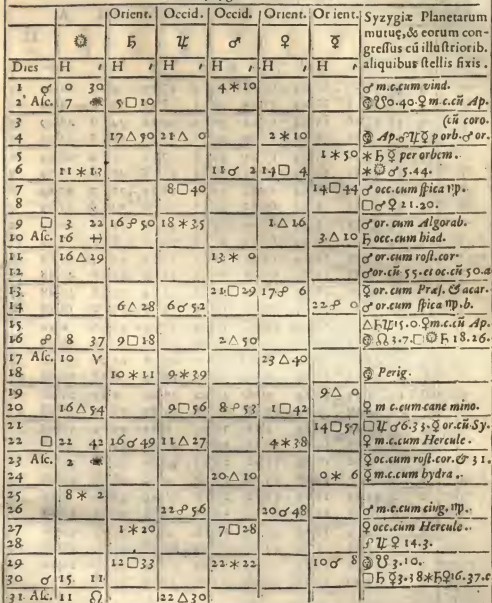 Orient. Occid. Occid. Orient. Orient. Syzygiæ Planetarum
mutuę, & eorum con-
☼ ♄ ♃ ♂ ♀ ☿ greſſus cũ illuſtriorib.
Dies H ′ H ′ H ′ H ′ H ′ H ′ aliquibus ſtellis fixis.
1 ☌ 0 30 4 ⚹ 10 ♂ m.c.cum vind.
2 Aſc. 7 5 □ 10 ☋ 0.40. ♀ m.c.cũ Ap.
3 (cũ coro.
4 17 △ 50 21 △ 0 2 ⚹ 10 Ap. ☿ p orb. ♂ or.
5 1 ⚹ 50 ⚹ ♄ ☿ per orbem.
6 11 ⚹ 13 11 ☌ 2 14 □ 4 ⚹ ☼ ♂ 5.44.
7 8 □ 40 14 □ 44 ♂ occ.cum ſpica ♍.
8 □ ♂ ♀ 21.20.
9 □ 3 22 16 ☍ 50 18 ⚹ 35 1 △ 16 ♂ or. cum Algorab.
10 Aſc. 16 ♓ 3 △ 10 ♄ occ.cum hiad.
11 16 △ 29 13 ⚹ 0 ♂ or.cum roſt.cor.
12 ♂ or.cũ 55. et oc.cũ 50.a
13 21 □ 29 17 ☍ 6 ☿ or. cum Præſ. & acar.
14 6 △ 28 6 ☌ 52 22 ☍ 0 ♂ or.cum ſpica ♍.b.
15 △ ♄ ♃ 15.0. ♀ m.c.cũ Ap.
16 ☍ 8 37 9 □ 18 2 △ 50 ☊ 3.7. □ ☼ ♄ 18.26.
17 Aſc. 10 ♈ 23 △ 40
18 10 ⚹ 11 9 ⚹ 39 Perig.
19 9 △ 0
20 16 △ 54 9 □ 56 8 ☍ 53 1 □ 42 ♀ m c.cum cane mino.
21 14 □ 57 □ ♃ ♂ 6.35. ☿ or.cũ Sy.
22 □ 22 42 16 ☌ 49 11 △ 27 4 ⚹ 38 ♀ m.c.cum Hercule.
23 Aſc. 2 ☿ oc.cum roſt.cor. & 31.
24 20 △ 10 0 ⚹ 6 ♀ m.c.cum hydra.
25 8 ⚹ 2
26 22 ☍ 56 20 ☌ 48 ♂ m.c.cum cing. ♍.
27 1 ⚹ 20 7 □ 28 ☿ occ.cum Hercule.
28 ☍ ♃ ♀ 14.3.
29 12 □ 33 22 ⚹ 22 10 ☌ 8 ☋ 3.10.
30 ☌ 15 11 □ ♄ ☿ 3.38 ⚹ ♄ ♀ 16.37.c
31 Aſc. 11 ♌ 22 △ 30